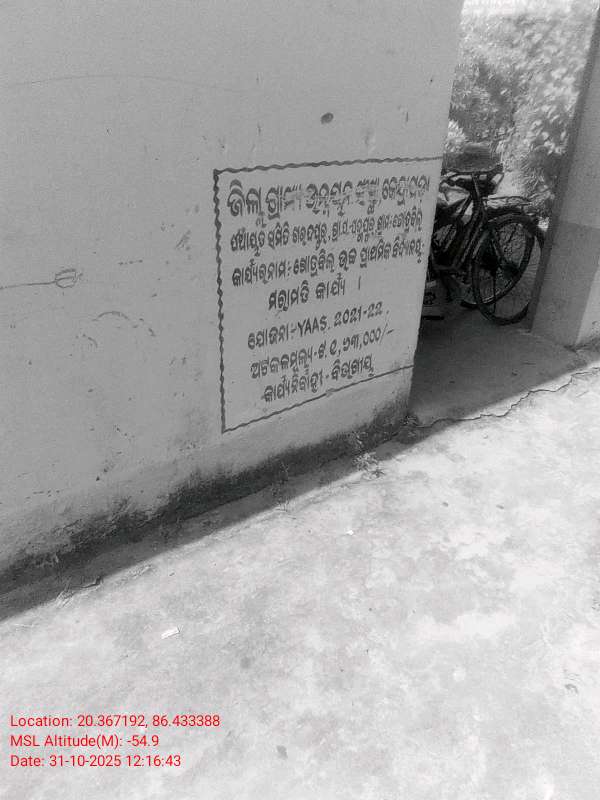 ଜିଲ୍ଲା ଗ୍ରାମ୍ୟ ଉନ୍ନୟନ ସଂସ୍ଥା, କେନ୍ଦ୍ରାପଡ଼ା
ପଞ୍ଚାୟତ ସମିତି ଗରଦପୁର, ଗ୍ରା.ପ.- ଗ୍ରାମ:-
କାର୍ଯ୍ୟର ନାମ:- ଉଚ୍ଚ ପ୍ରାଥମିକ ବିଦ୍ୟାଳୟ
ମରାମତି କାର୍ଯ୍ୟ ।
ଯୋଜନା:- YAAS. 2021-22.
ଅଟକଳମୂଲ୍ୟ-ଟ.
କାର୍ଯ୍ୟନିର୍ବାହୀ - ବିଭାଗୀୟ
Location: 20.367192, 86.433388
MSL Altitude(M): -54.9
Date: 31-10-2025 12:16:43